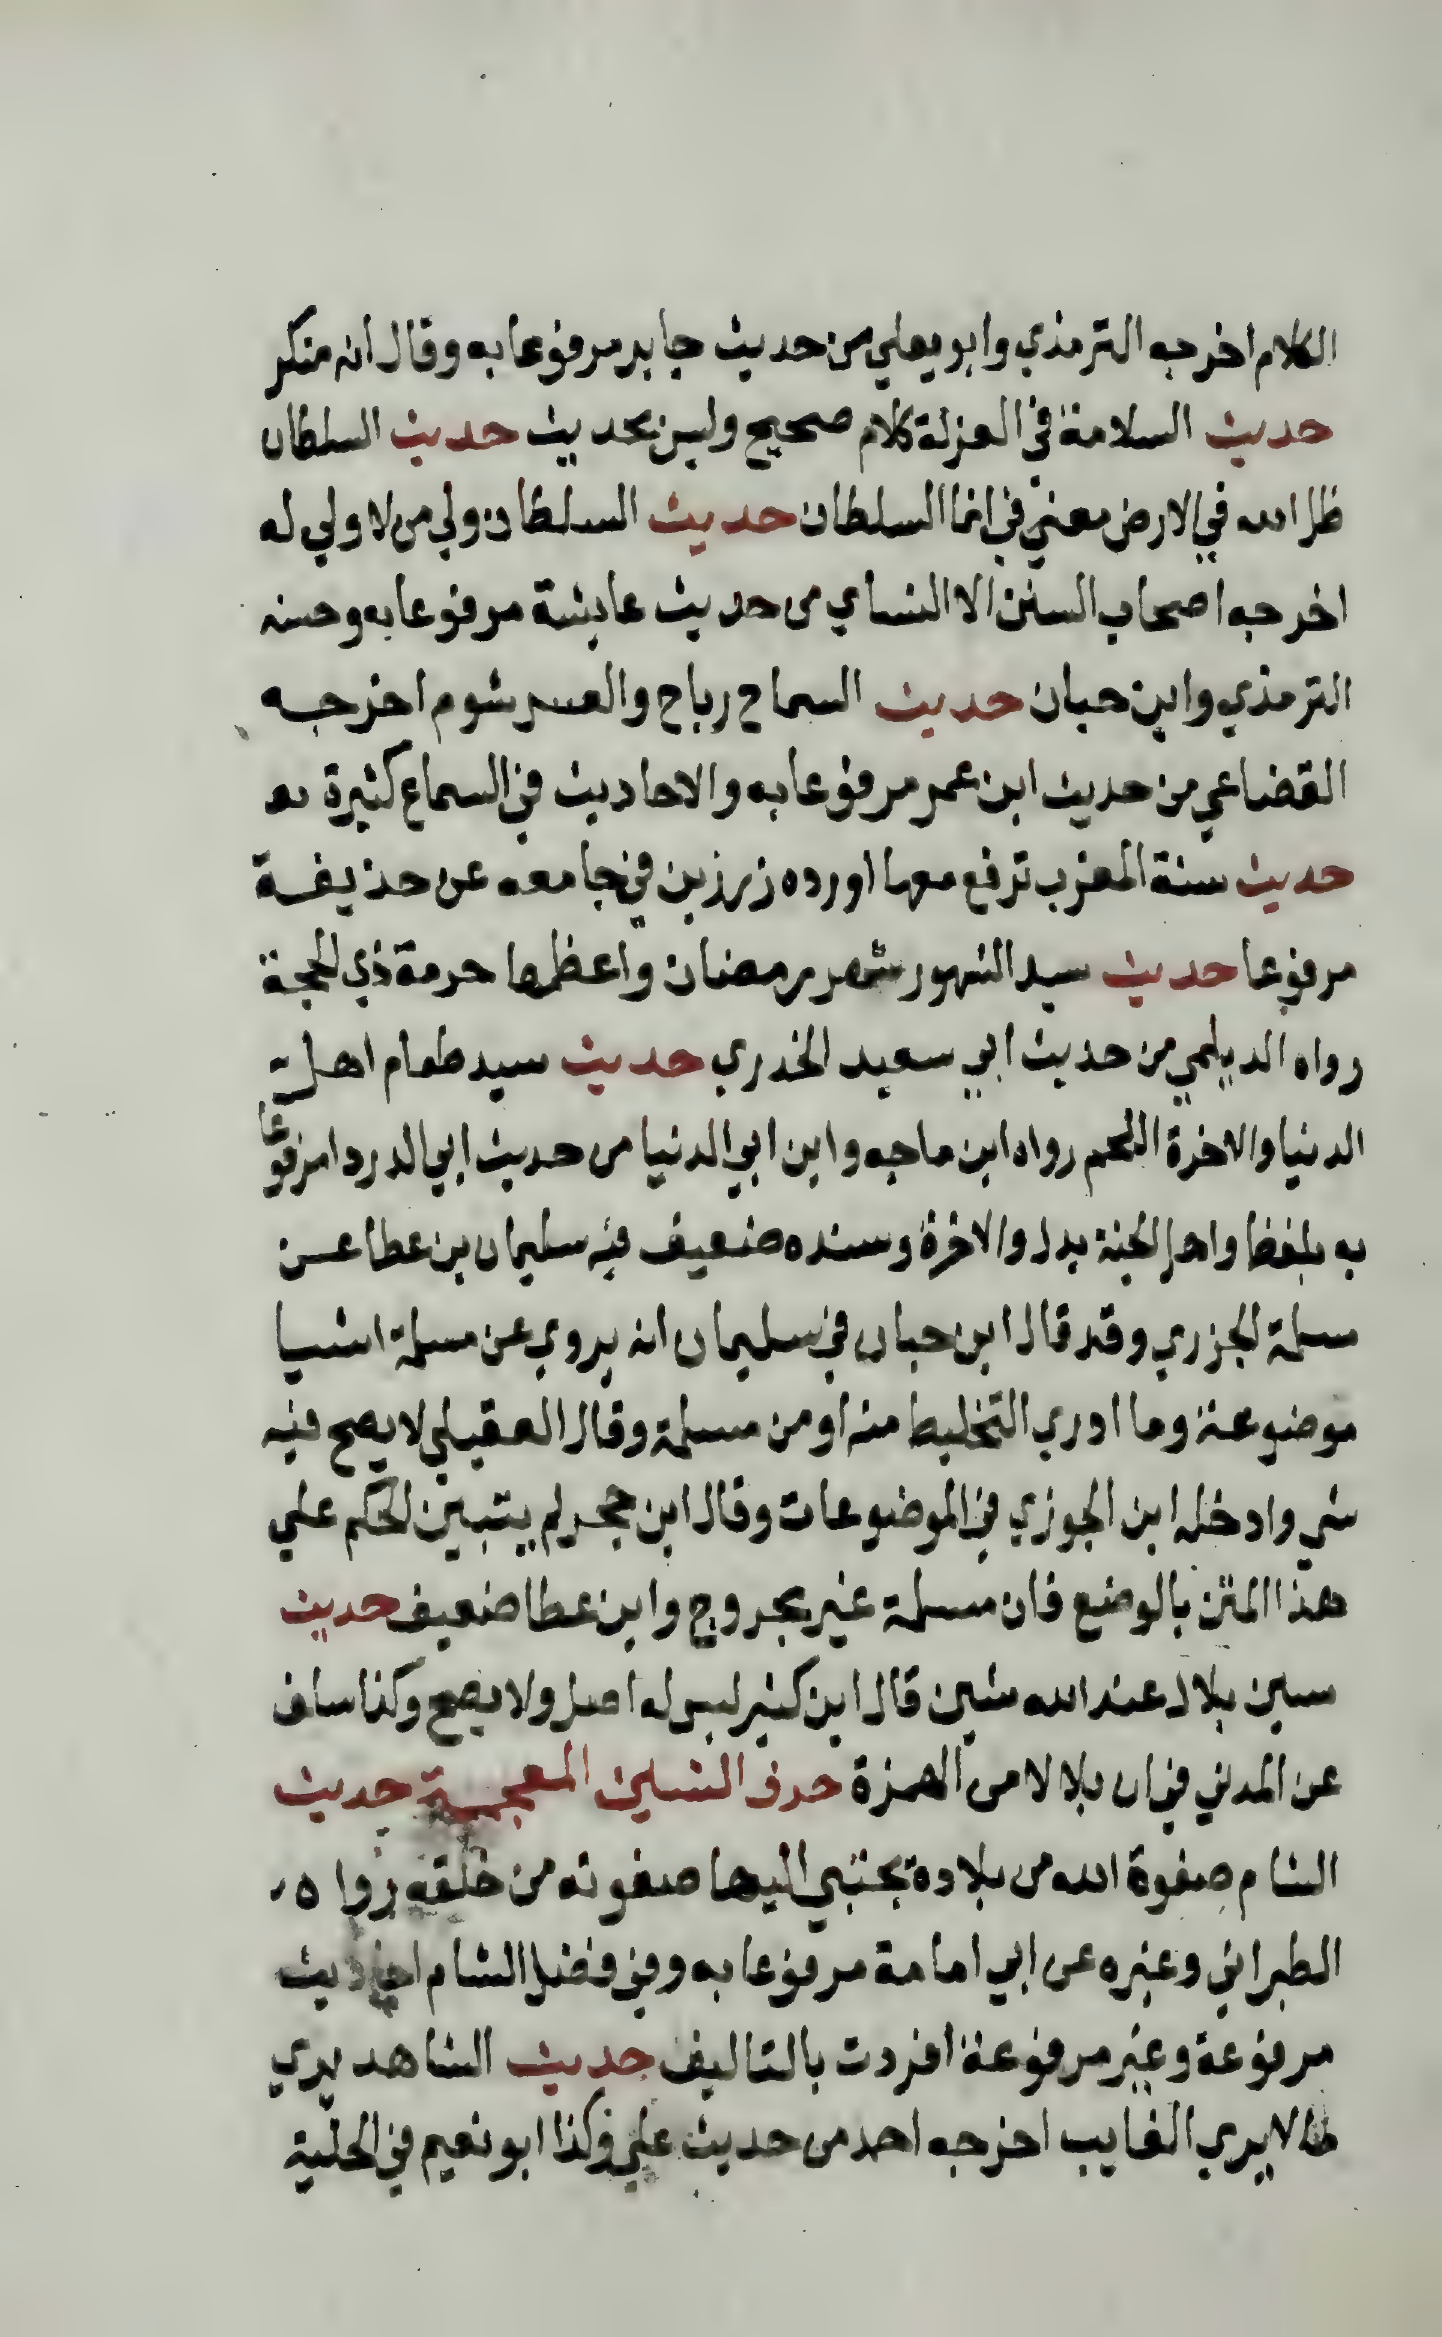 الكلام اخرجه الترمذي وابو يعلي من حديث جابر مرفوعا به وقال انه منكر
حديث السلامة في العزلة كلام صحيح وليس بحديث حديث السلطان
ظل الله في الارض معني في انما السلطان حديث السلطان ولي من لا ولي له
اخرجه اصحاب السنن الا النساي من حديث عايشة مرفوعا به وحسنه
الترمذي وابن حبان حديث السماح رباح والعسر شوم اخرجه
القضاعي من حديث ابن عمر مرفوعا به والاحاديث في السماع كثيرة
حديث سنة المغرب ترفع معها اورده زرزين في جامعه عن حذيفة
مرفوعا حديث سيد الشهور شهر رمضان واعظمها حرمة ذي الحجة
رواه الديلمي من حديث ابي سعيد الخدري حديث سيد طعام اهل
الدنيا والاخرة اللحم رواه ابن ماجه وابن ابي الدنيا من حديث ابي الدردا مرفوعا
به بلفظ واهل الجنة بدل والاخرة وسنده ضعيف فيه سليمان بن عطا عن
مسلمة الجزري وقد قال ابن حبان في سليمان انه يروي عن مسلمة اشيا
موضوعة وما ادري التخليط منه او من مسلمة وقال العقيلي لا يصح فيه
شي وادخله ابن الجوزي في الموضوعات وقال ابن حجر لم يتبين لحكم علي
هذا المتن بالوضع فان مسلمة غير مجروح وابن عطا ضعيف حديث
سين بلال عند الله شين قال ابن كثير ليس له اصل ولا يصح وكذا سلف
عن المدني في ان بلالا من الهمزة حرف الشين المعجمة حديث
الشام صفوة الله من بلاده يجتبي اليها صفوته من خلقه رواه
الطبراني وغيره عن ابي امامة مرفوعا به وفي فضل الشام احاديث
مرفوعة وغير مرفوعة افردت بالتاليف حديث الشاهد يري
ما لا يري الغايب اخرجه احمد من حديث علي وكذا ابو نعيم في الحلية